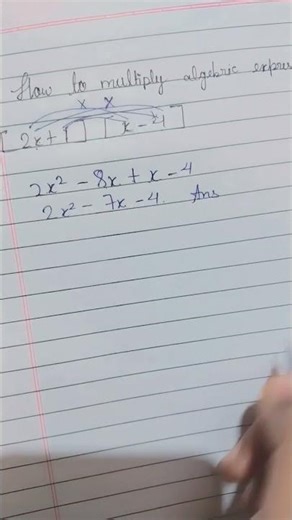 How to multiply algebric expres
x x
[2x+1] [x-4]
2x² - 8x + x - 4
2x² - 7x - 4 Ans